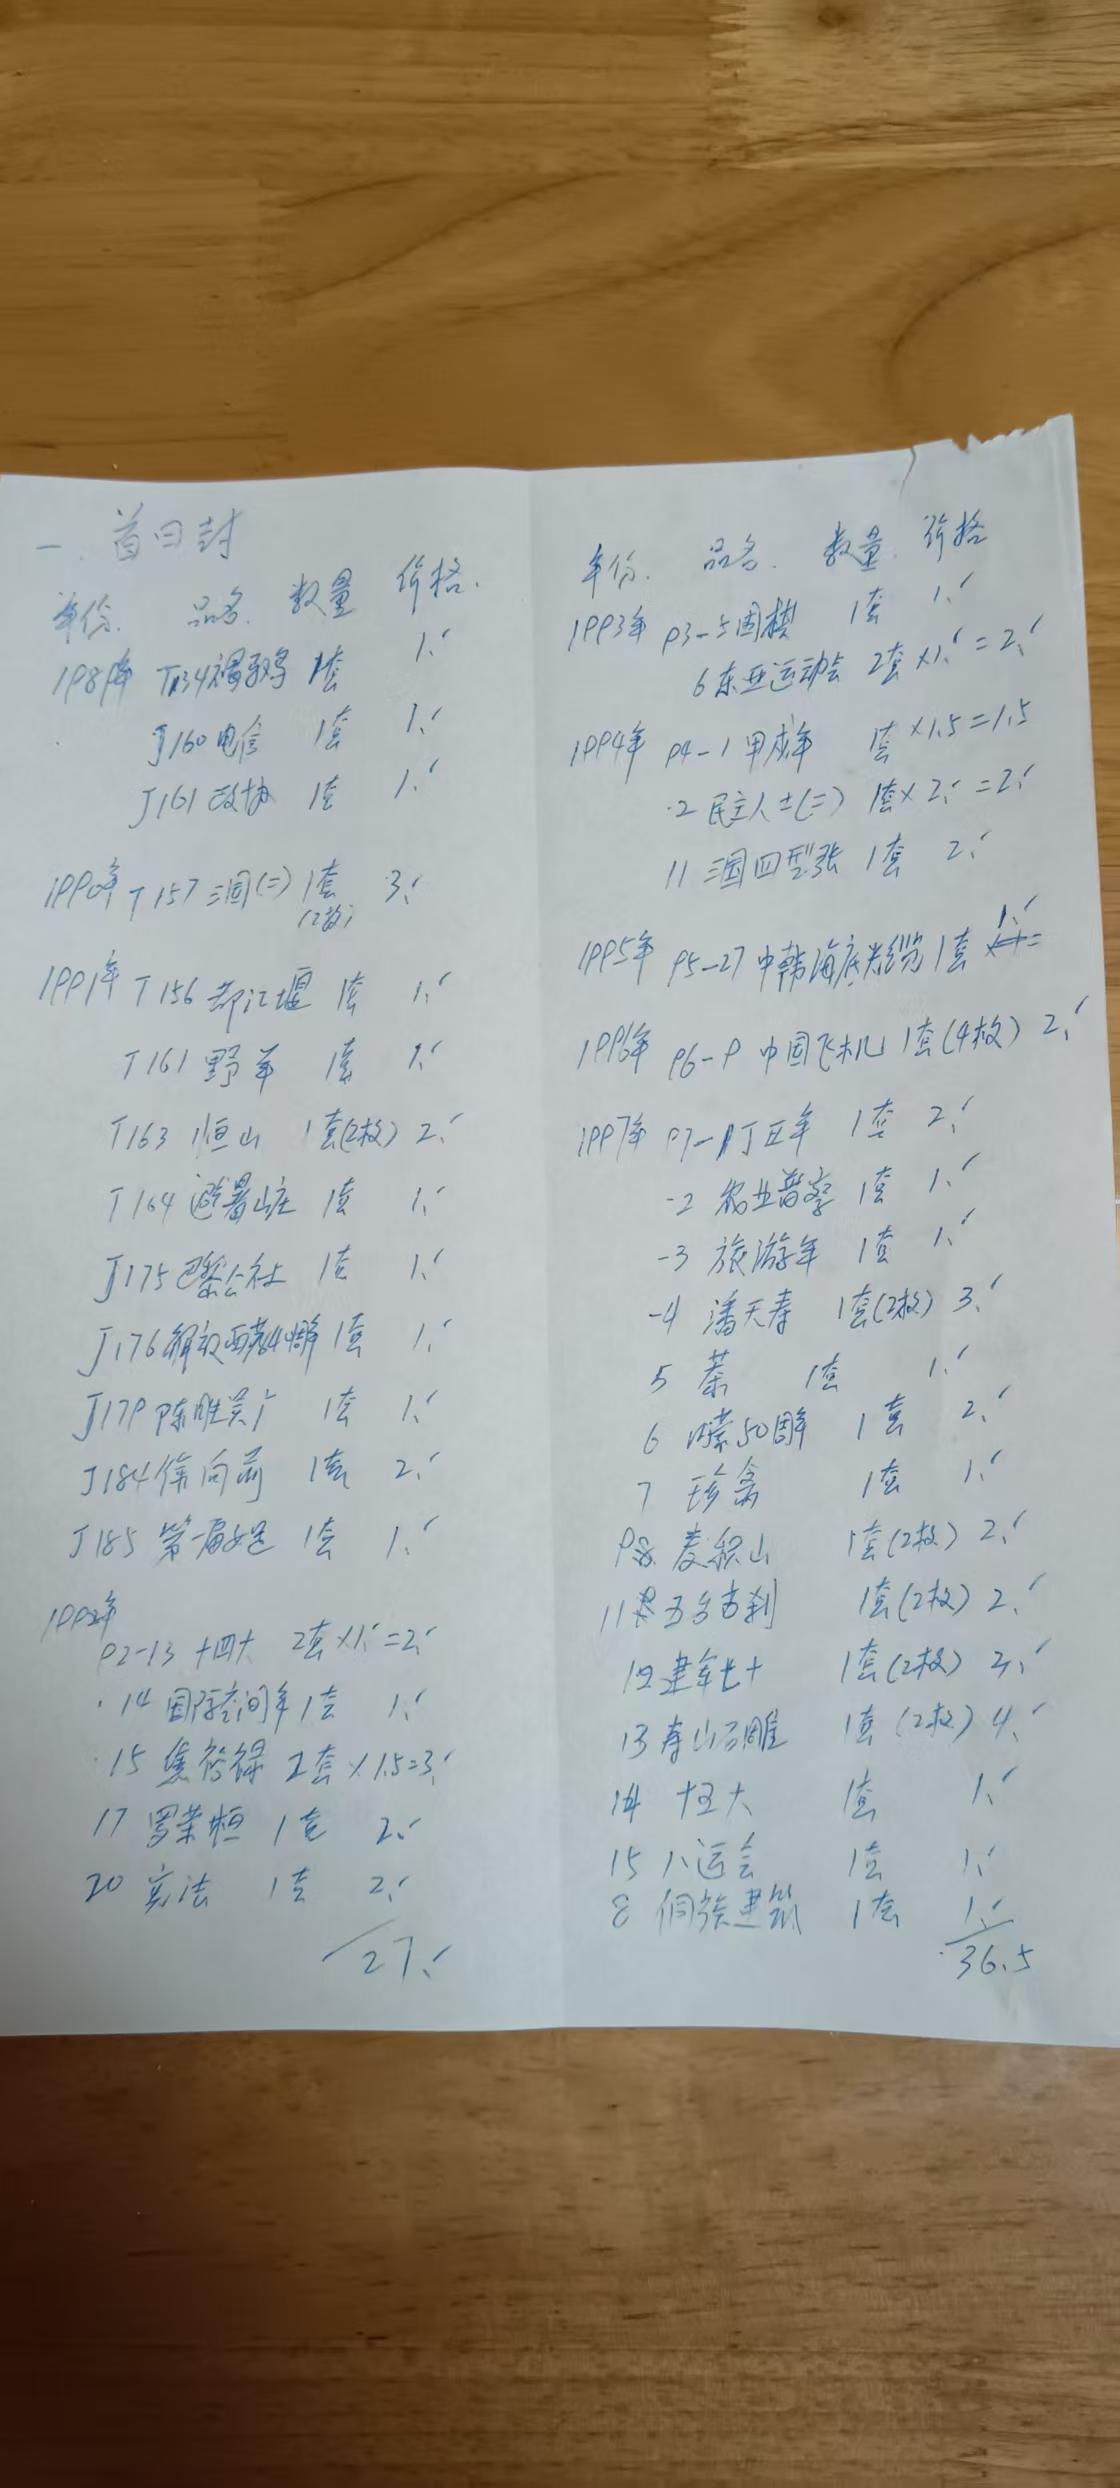 一、首日封
年份. 品名. 数量 价格.
1989年 T134褐马鸡 1套 1.-
J160电信 1套 1.-
J161政协 1套 1.-
1990年 T157三国(二) 1套 3.-
(2枚)
1991年 T156都江堰 1套 1.-
T161野羊 1套 1.-
T163恒山 1套(2枚) 2.-
T164避暑山庄 1套 1.-
J175巴黎公社 1套 1.-
J176解放西藏4周年 1套 1.-
J179陈胜吴广 1套 1.-
J184徐向前 1套 2.-
J185第一届女足 1套 1.-
1992年
92-13 十四大 2套×1.-=2.-
14国际空间年1套 1.-
15焦裕禄 2套×1.5=3.-
17罗荣桓 1套 2.-
20宪法 1套 2.-
27.-
年份. 品名. 数量. 价格
1993年 93-5围棋 1套 1.-
6东亚运动会 2套×1.-=2.-
1994年 94-1甲戌年 1套×1.5=1.5
·2民主人士(二) 1套×2.-=2.-
11三国四型张 1套 2.-
1995年 95-27中韩海底光缆1套 1.-
1996年 96-9中国飞机 1套(4枚) 2.-
1997年 97-1丁丑年 1套 2.-
-2农业普查 1套 1.-
-3旅游年 1套 1.-
-4潘天寿 1套(2枚) 3.-
5茶 1套 1.-
6内蒙50周年 1套 2.-
7珍禽 1套 1.-
9麦积山 1套(2枚) 2.-
11五台古刹 1套(2枚) 2.-
12建军七十 1套(2枚) 2.-
13寿山石雕 1套(2枚) 4.-
14十五大 1套 1.-
15八运会 1套 1.-
8侗族建筑 1套 1.-
36.5